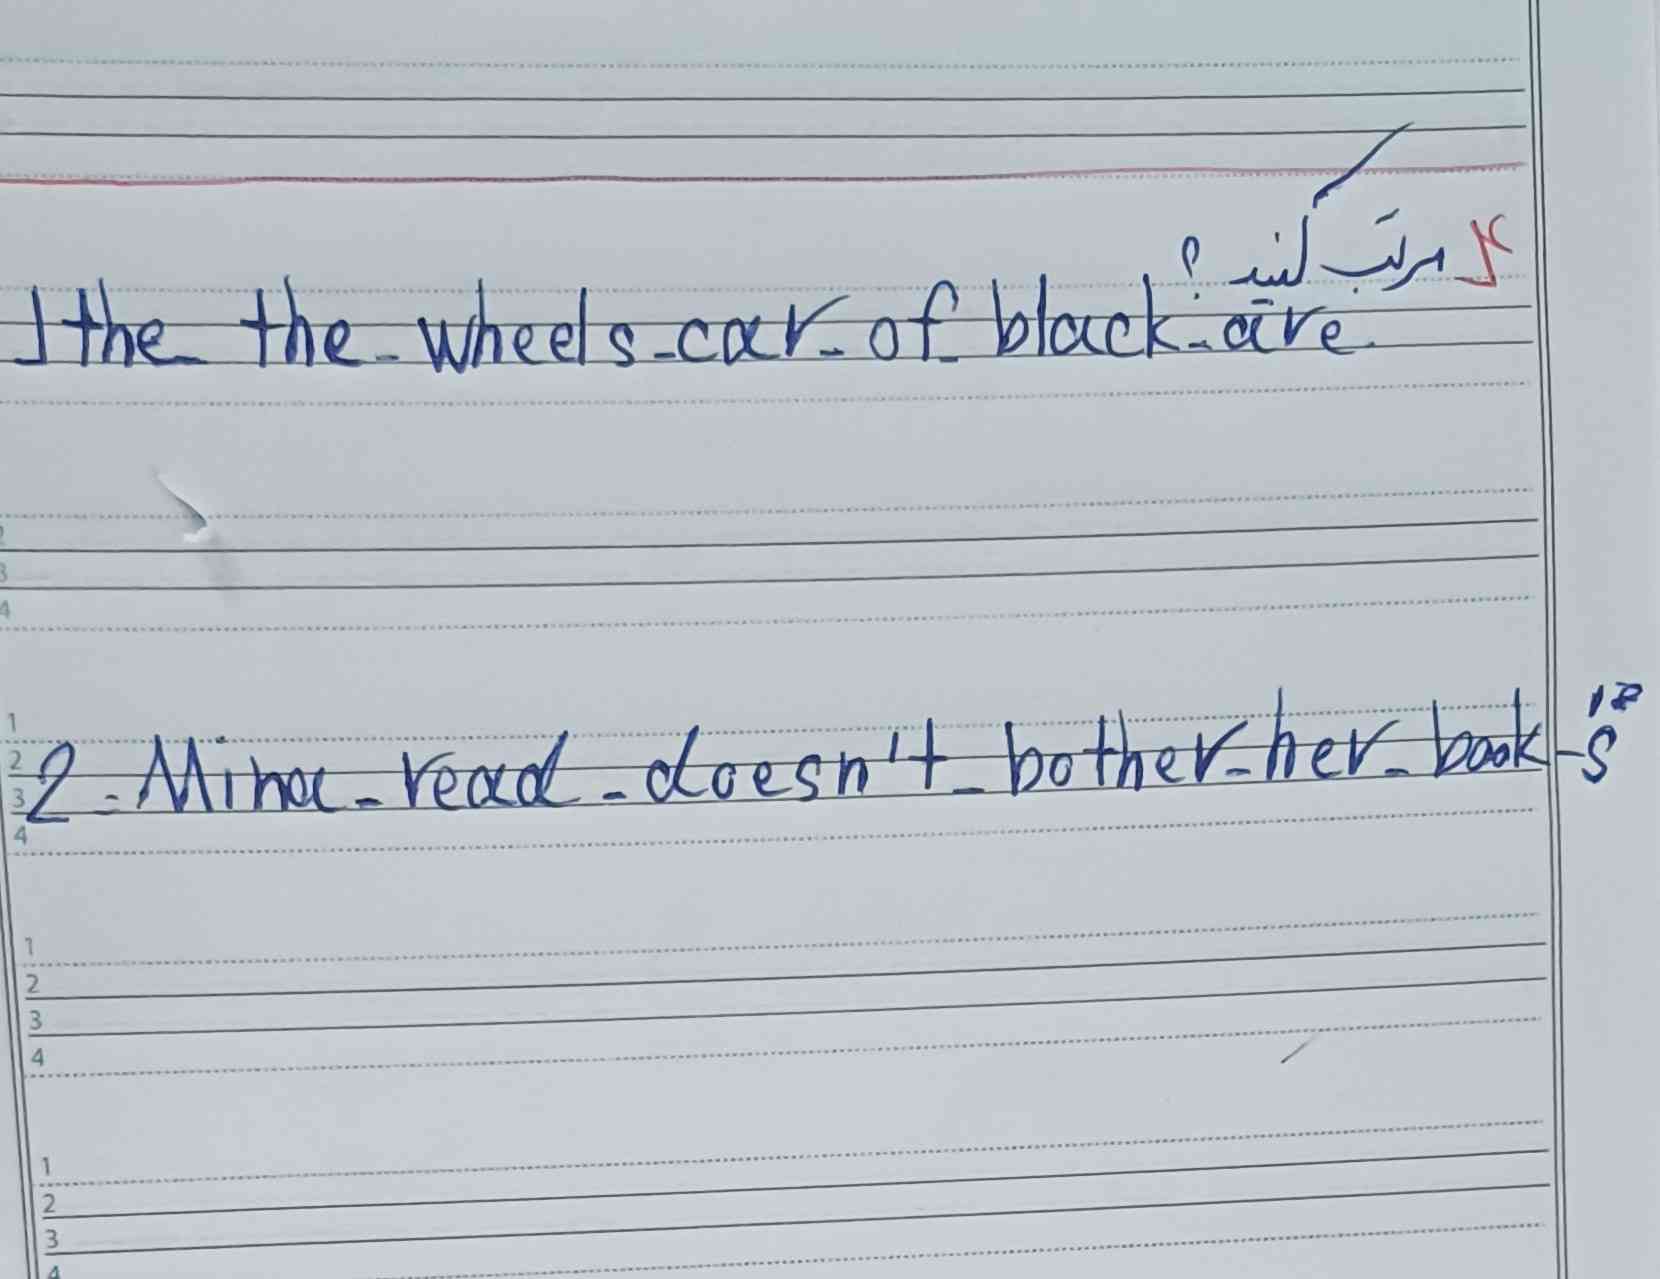 ۴ مرتب کنید؟
1 the the - wheels - car - of - black - are.
1
2
3
4
2 - Mina - read - doesn't - bother - her - book - s
1
2
3
4
1
2
3
4